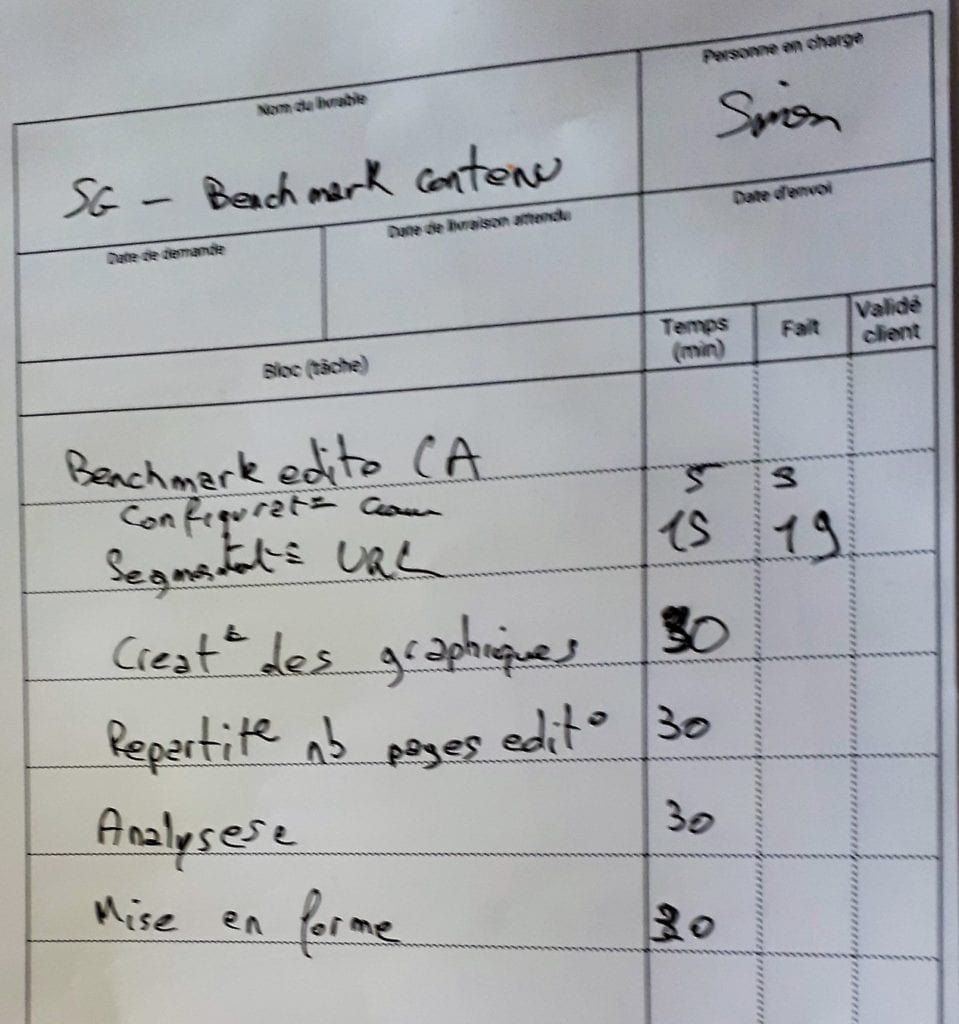 Personne en charge
Nom du livrable
Simon
SG - Benchmark contenu
Date d'envoi
Date de demande
Date de livraison attendu
Temps (min)
Fait
Validé client
Bloc (tâche)
Benchmark edito CA
Configurat=
5 3
Segmentat= URL
15 19
Creat= des graphiques 30
Repartit= nb pages edito 30
Analysese 30
Mise en forme